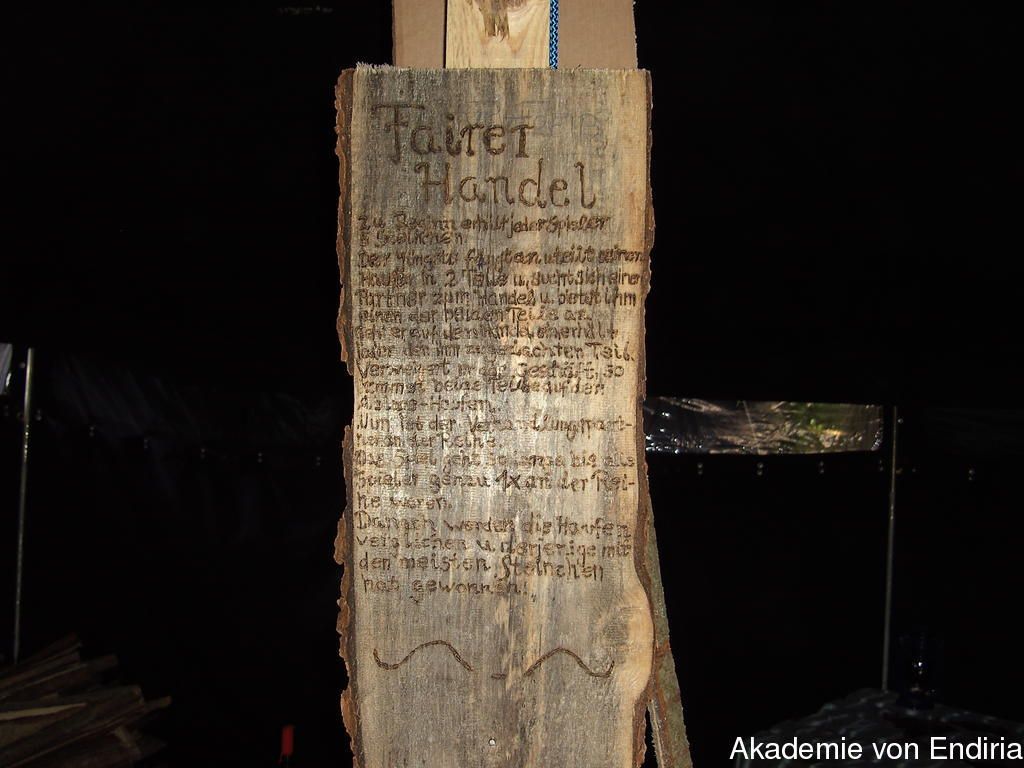 Fairer
Handel
Zu Beginn erhält jeder Spieler
5 Steinchen
Der jüngste fängt an u. teilt seinen
Haufen in 2 Teile u. sucht sich einen
Partner zum Handel u. bietet ihm
einen der beiden Teile an.
Geht er auf den Handel ein erhält
jeder den ihm zugedachten Teil.
Verweigert er das Geschäft, so
kommen beide Teile auf den
Haufen.
Nun ist der Verhandlungspart-
ner an der Reihe.
Das Spiel geht so bis alle
Spieler genau 1x an der Rei-
he waren.
Danach werden die Haufen
verglichen u. derjenige mit
den meisten Steinchen
hat gewonnen!
Akademie von Endiria